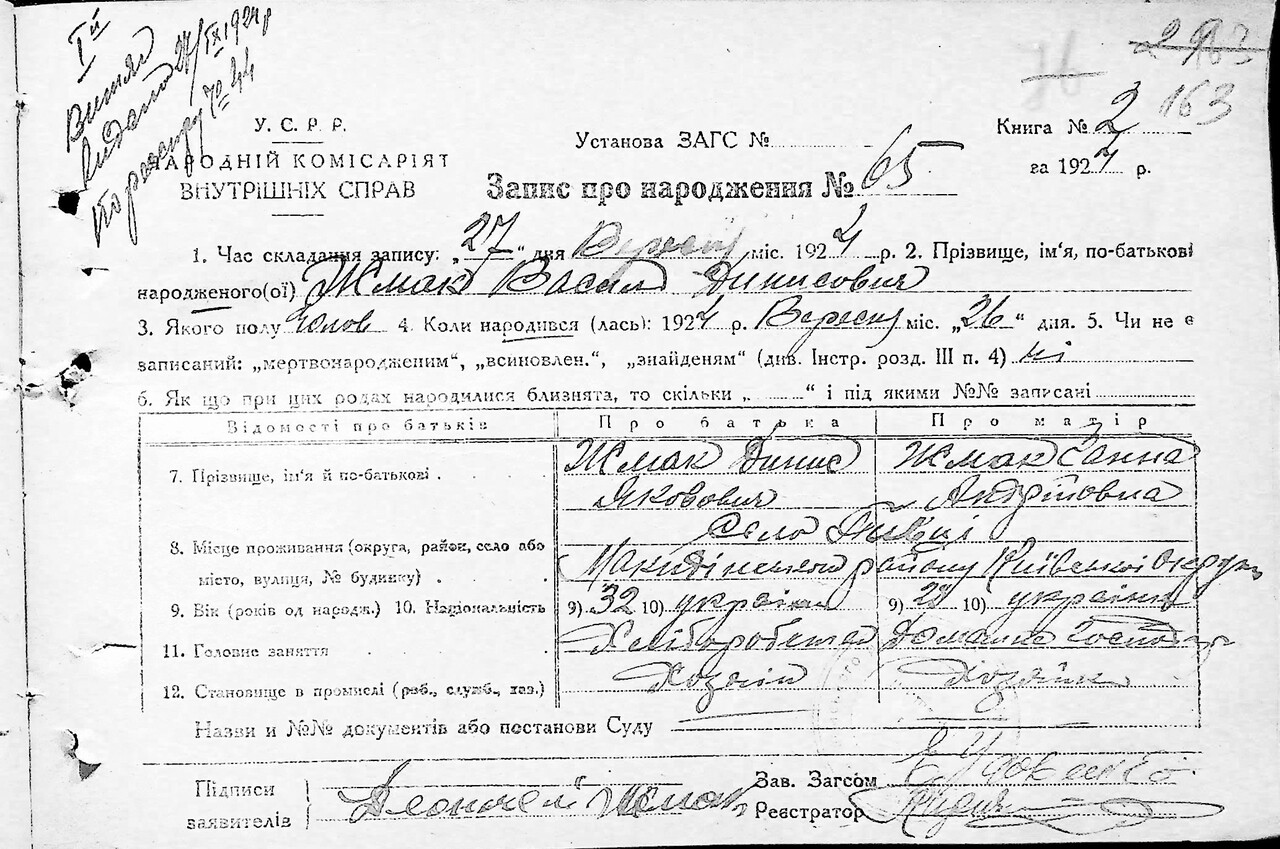 Iй
Витяг
видано 27/IX 1924 р
По реєстру № 44
2983
163
У. С. Р. Р.
НАРОДНІЙ КОМІСАРІЯТ
ВНУТРІШНІХ СПРАВ
Установа ЗАГС №
Книга № 2
за 1924 р.
Запис про народження № 65
1. Час складання запису: „27“ дня Вересня міс. 1924 р. 2. Прізвище, ім'я, по-батькові
народженого(ої) Жмак Васил Динисович
3. Якого полу Чолов 4. Коли народився (лась): 1924 р. Вересня міс. „26“ дня. 5. Чи не є
записаний: „мертвонародженим“, „всиновлен.“, „знайденям“ (див. Інстр. розд. III п. 4) ні
6. Як що при цих родах народилися близнята, то скільки „ “ і під якими №№ записані
Відомості про батьків Про батька Про матір
7. Прізвище, ім'я й по-батькові . Жмак Динис Жмак Ганна
Якович Андріївна
Село
8. Місце проживання (округа, район, село або
місто, вулиця, № будинку) . району Київської Округи
9. Вік (років од народж.) 10. Національність 9) 32 10) україн 9) 10) україн
11. Головне заняття Хліборобство Домашнє Господар
12. Становище в промислі (роб., служб., хаз.) Хозяін Хозяйк
Назви и №№ документів або постанови Суду
Підписи
заявителів Жмак
Зав. Загсом
Реєстратор